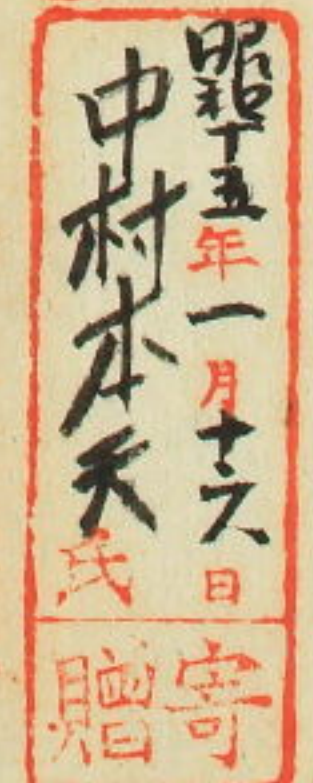 昭和十五年一月十六日
中村本天氏
寄贈